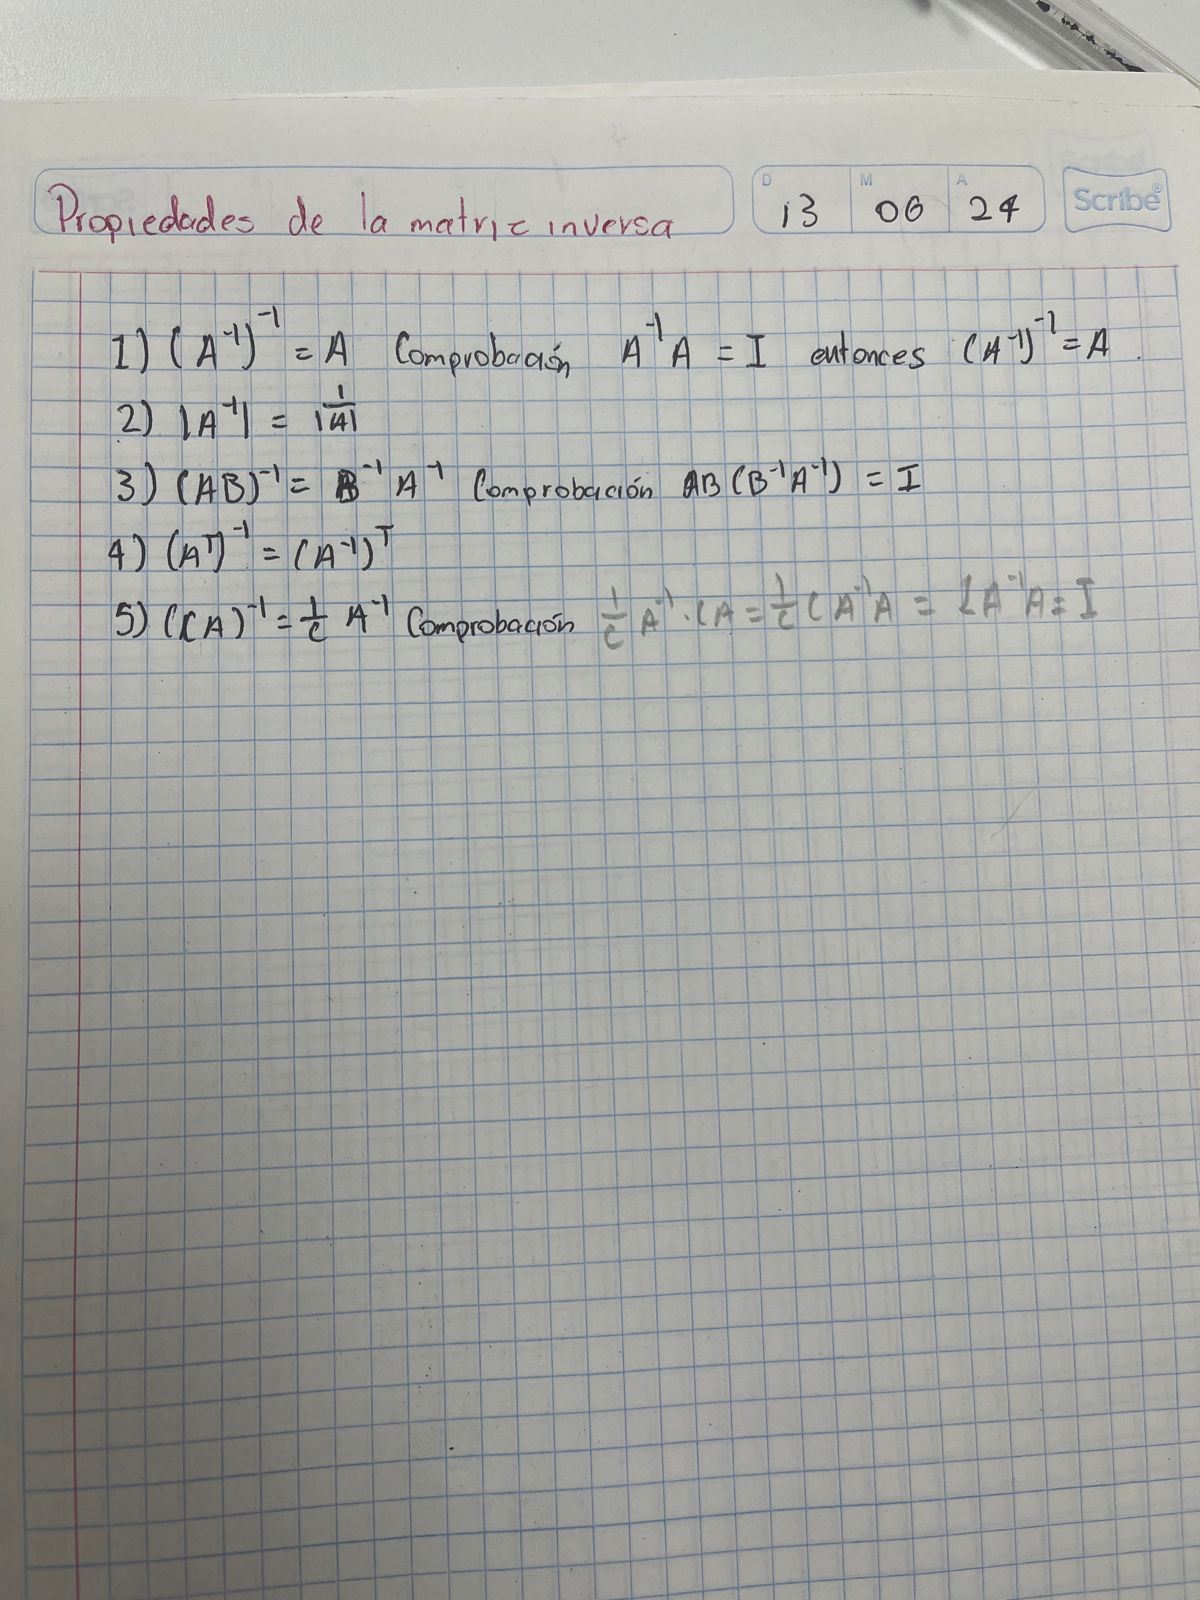 Propiedades de la matriz inversa
D 13 M 06 A 24
Scribe®
1) (A⁻¹)⁻¹ = A Comprobación A⁻¹A = I entonces (A⁻¹)⁻¹ = A.
2) |A⁻¹| = 1/|A|
3) (AB)⁻¹ = B⁻¹ A⁻¹ Comprobación AB(B⁻¹A⁻¹) = I
4) (Aᵀ)⁻¹ = (A⁻¹)ᵀ
5) (CA)⁻¹ = 1/C A⁻¹ Comprobación 1/C A⁻¹·CA = 1/C C A⁻¹A = 1A⁻¹A = I